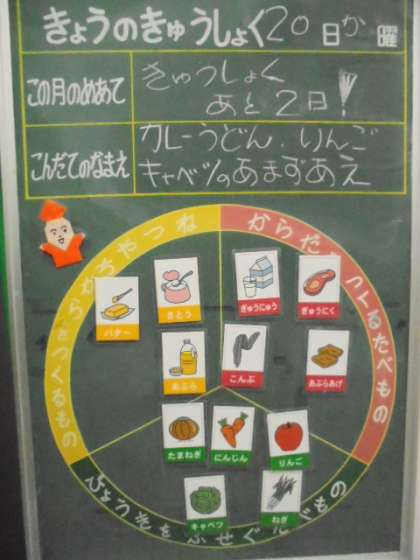 きょうのきゅうしょく 20日 か 曜
この月のめあて
きゅうしょく
あと2日!
こんだてのなまえ
カレーうどん.りんご
キャベツのあまずあえ
ちからやねつ
をつくるもの
からだをつくるたべもの
びょうきをふせぐたべもの
バター
さとう
ぎゅうにゅう
ぎゅうにく
あぶら
こんぶ
あぶらあげ
たまねぎ
にんじん
りんご
キャベツ
ねぎ